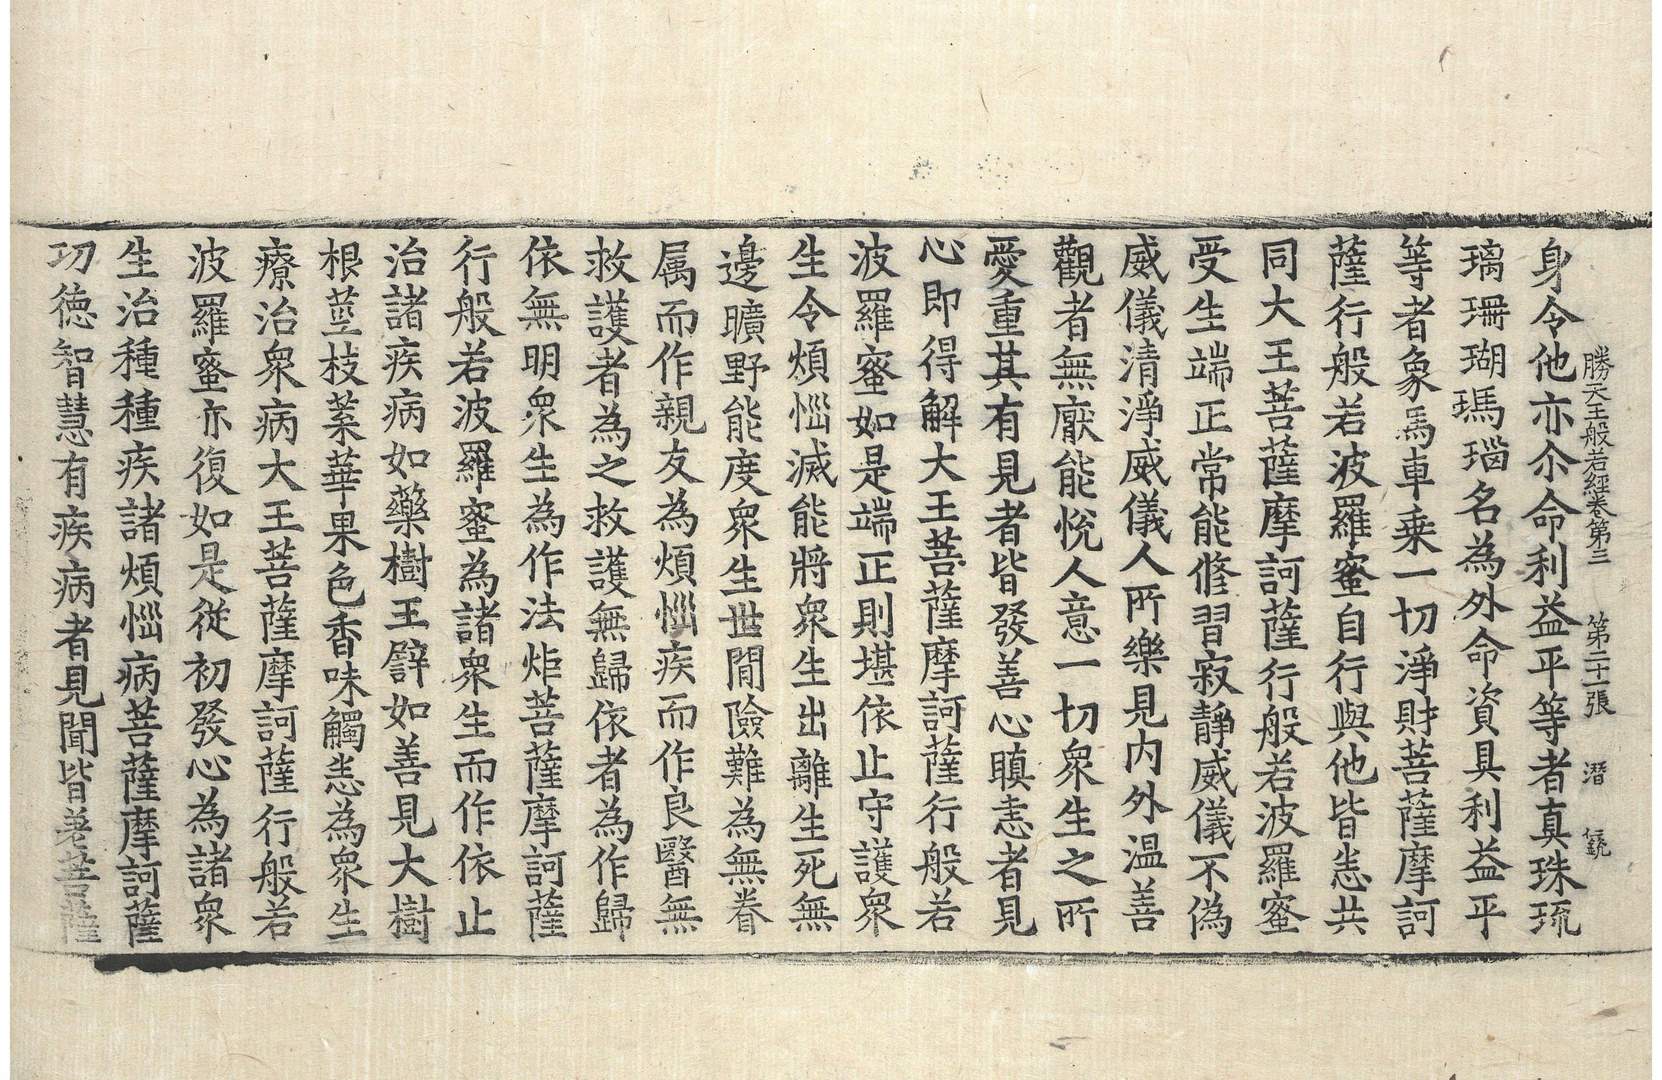 勝天王般若經卷第三 第二十一張 潛
身令他亦尒命利益平等者真珠琉
璃珊瑚瑪瑙名為外命資具利益平
等者象馬車乗一切淨財菩薩摩訶
薩行般若波羅蜜自行與他皆悉共
同大王菩薩摩訶薩行般若波羅蜜
受生端正常能修習寂靜威儀不偽
威儀清淨威儀人所樂見内外温善
觀者無厭能悅人意一切衆生之所
愛重其有見者皆發善心瞋恚者見
心即得解大王菩薩摩訶薩行般若
波羅蜜如是端正則堪依止守護衆
生令煩惱滅能將衆生出離生死無
邊曠野能度衆生世間險難為無眷
属而作親友為煩惱疾而作良醫無
救護者為之救護無歸依者為作歸
依無明衆生為作法炬菩薩摩訶薩
行般若波羅蜜為諸衆生而作依止
治諸疾病如藥樹王譬如善見大樹
根莖枝葉華果色香味觸悉為衆生
療治衆病大王菩薩摩訶薩行般若
波羅蜜亦復如是従初發心為諸衆
生治種種疾諸煩惱病菩薩摩訶薩
功徳智慧有疾病者見聞皆差菩薩